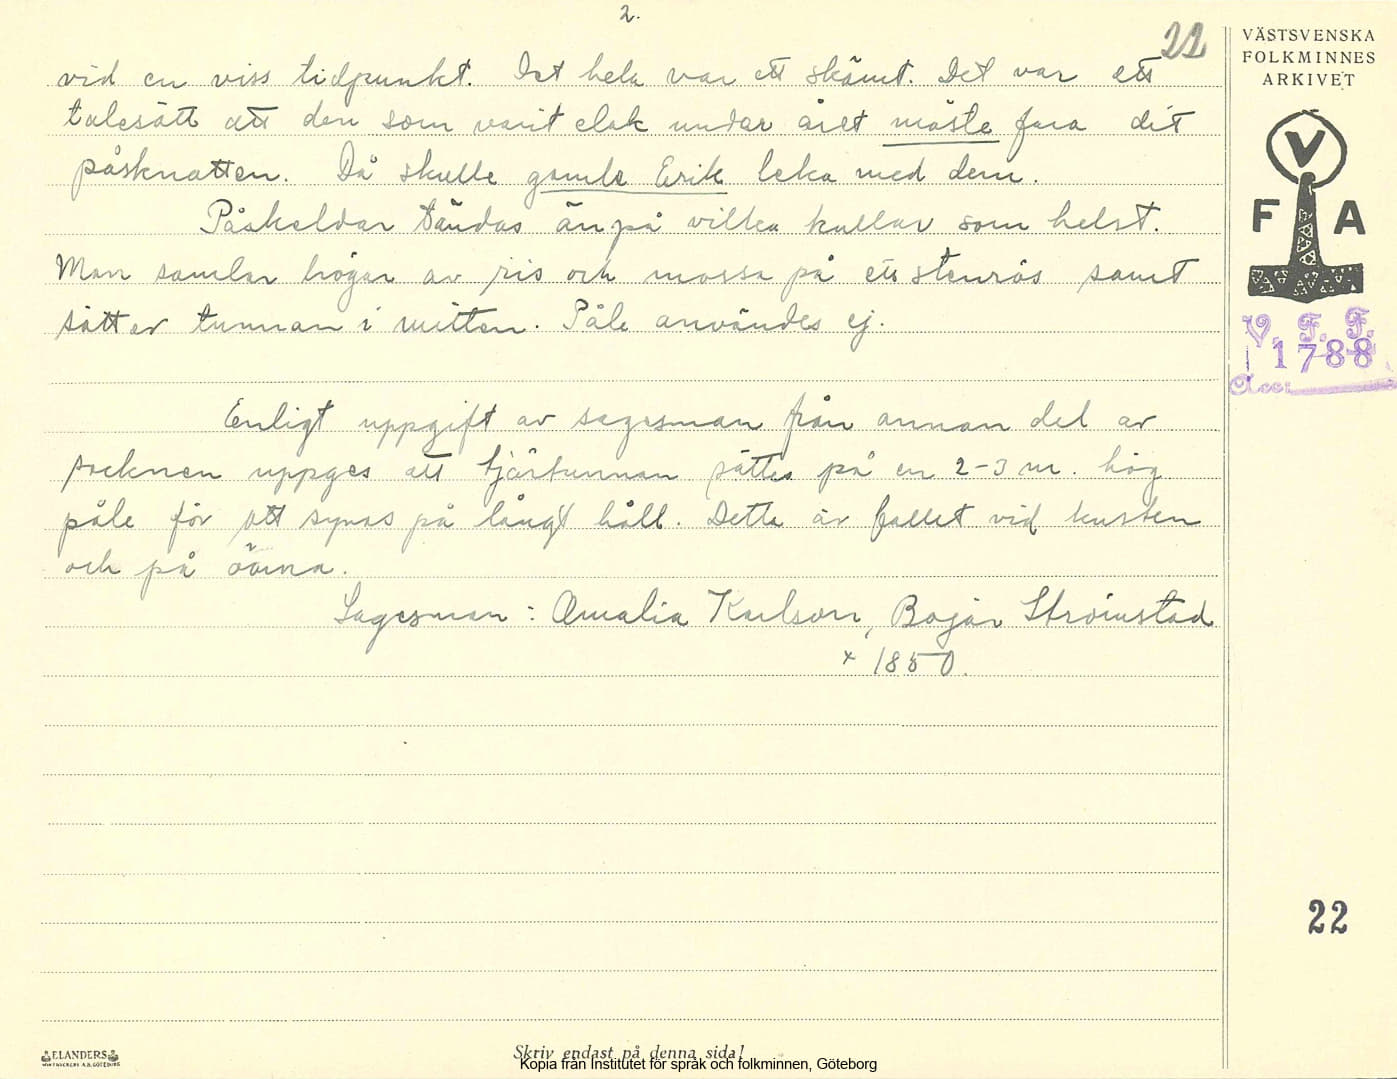 2.
22
vid en viss tidpunkt. Det hela var ett skämt. Det var ett
talesätt att den som varit elak under året måste fara dit
påsknatten. Då skulle gamle Erik leka med dem.
Påskeldar tändas än på vilka kullar som helst.
Man samlar högar av ris och mossa på ett stenrös samt
sätter tunnan i mitten. Påle användes ej.
Enligt uppgift av sagesman från annan del av
socknen uppges att tjärtunnan sättes på en 2-3 m. hög
påle för att synas på långt håll. Detta är fallet vid kusten
och på öarna.
Sagesman: Amalia Karlson, Bojar Strömstad
* 1850.
VÄSTSVENSKA
FOLKMINNES
ARKIVET
V
F A
V. F. F.
1788
Acc:
22
ELANDERS
Skriv endast på denna sida!
Kopia från Institutet för språk och folkminnen, Göteborg